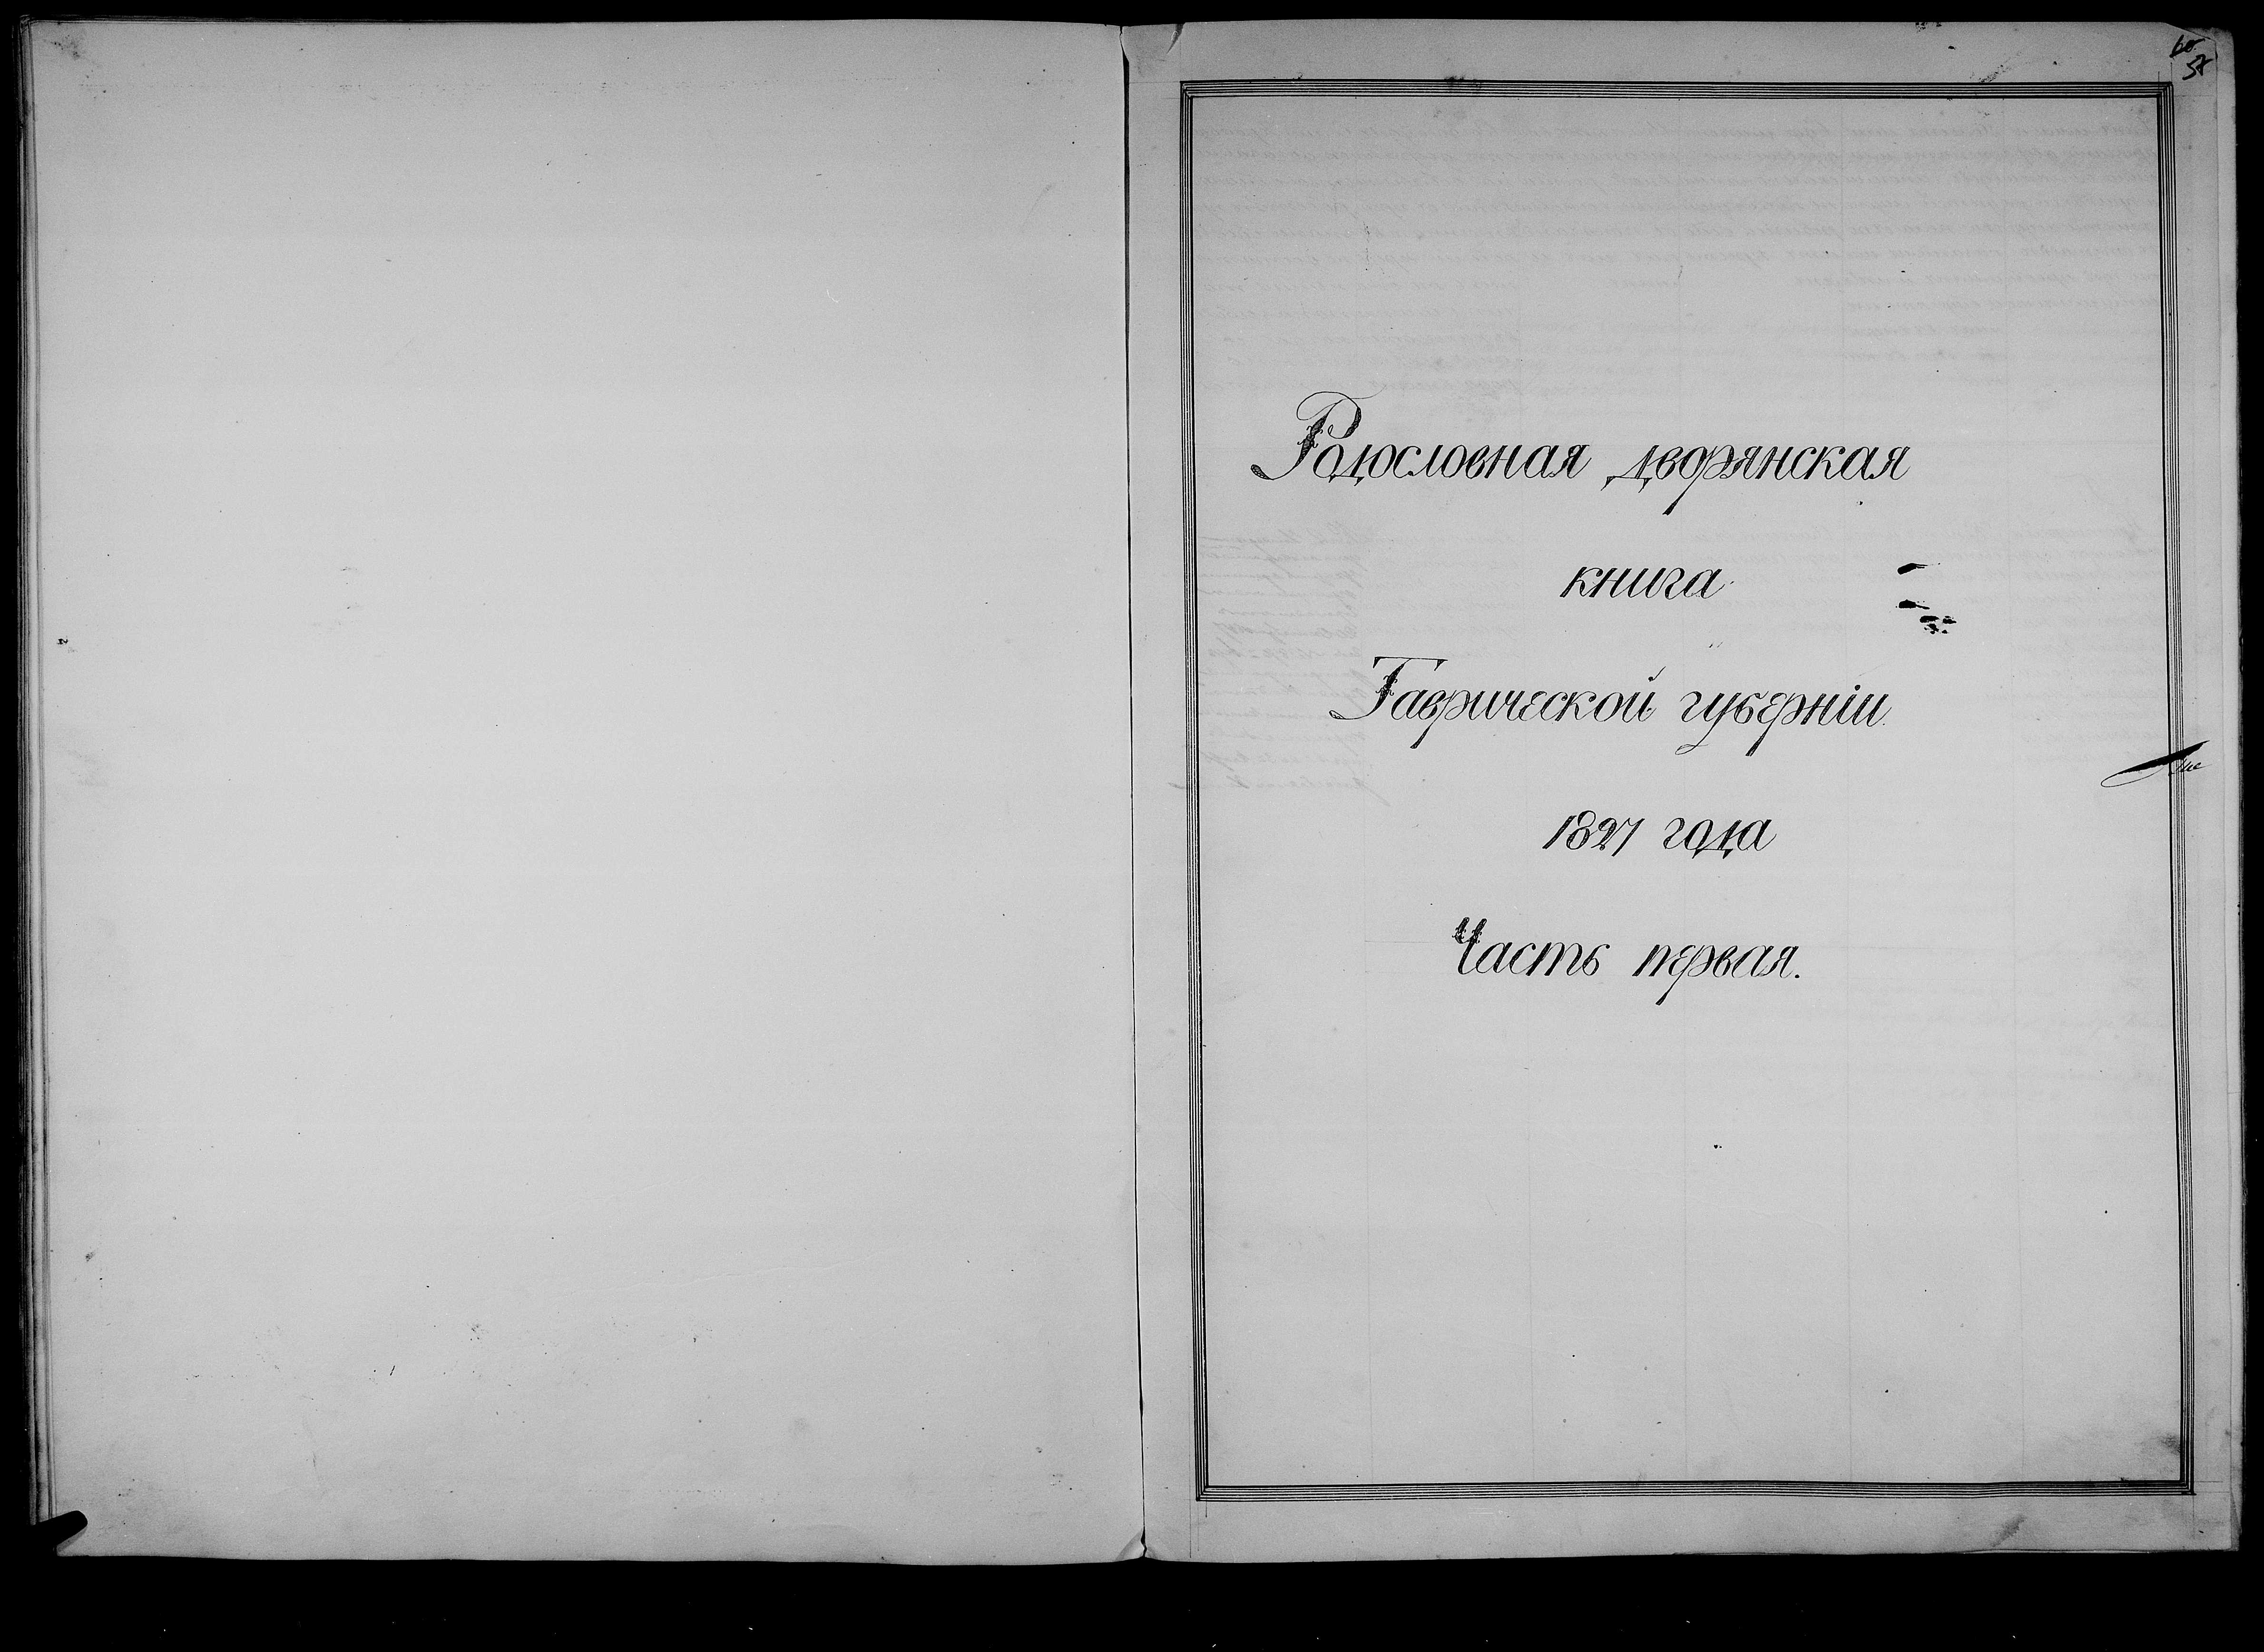 Родословная дворянская
книга
Таврической губерніи.
1897 года
Часть первая.